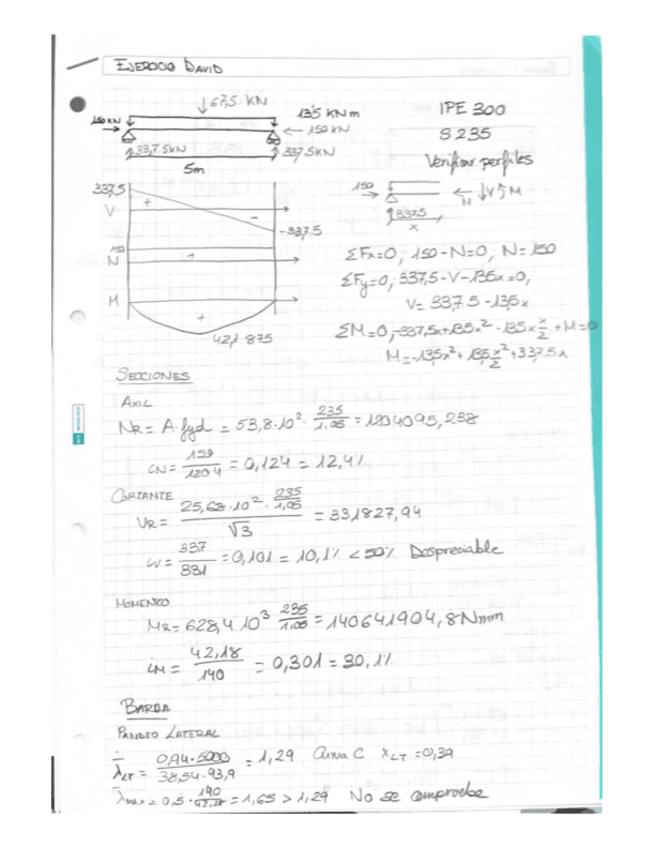 EJERCICIO DAVID
↓67,5 KN
150KN → 13'5 KN m
← 150KN
33,75KN 33,75KN
5m
IPE 300
S 235
Verificar perfiles
337,5
V + - -337,5
150
N +
M +
42,1875
150 → ← N ↓V ↑M
337,5
x
ΣFx=0; 150-N=0; N=150
ΣFy=0; 337,5-V-135x=0,
V= 337,5-135x
ΣM=0, -337,5x+135x²-135x x/2 +M=0
M=-135x²+135 x²/2 +337,5x
SECCIONES
AXIL
NR= A·fyd = 53,8·10²· 235/1,05 = 1204095,238
iN= 150/1204 = 0,124 = 12,4%
CORTANTE
VR= (25,68·10²· 235/1,05)/√3 = 331827,94
iV= 337/331 = 0,101 = 10,1% <50% Despreciable
MOMENTO
MR= 628,4·10³ 235/1,05 = 140641904,8Nmm
iM= 42,18/140 = 0,301 = 30,1%
BARRA
PANDEO LATERAL
λLT = 0,94·5000/38,54·93,9 = 1,29 Curva C χLT=0,39
λmax= 0,5· 140/42,18 = 1,65 > 1,29 No se comprueba